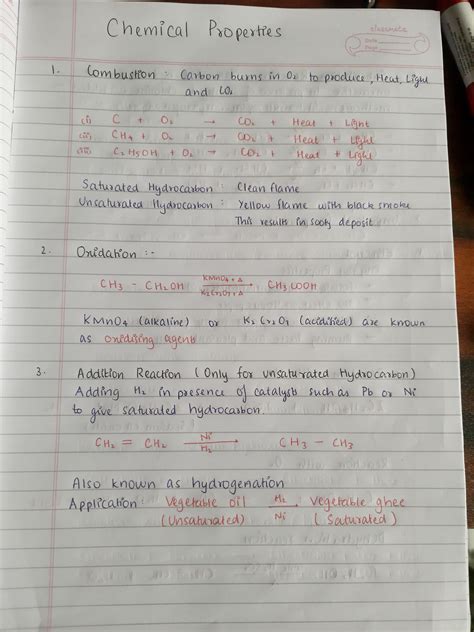 classmate
Date
Page
Chemical Properties
1. Combustion : Carbon burns in O₂ to produce, Heat, Light
and CO₂
(i) C + O₂ → CO₂ + Heat + Light
(ii) CH₄ + O₂ → CO₂ + Heat + Light
(iii) C₂H₅OH + O₂ → CO₂ + Heat + Light
Saturated Hydrocarbon : Clean flame
Unsaturated Hydrocarbon : Yellow flame with black smoke
This results in sooty deposit
2. Oxidation :-
CH₃ - CH₂OH KMnO₄ + Δ CH₃COOH
K₂Cr₂O₇ + Δ
KMnO₄ (alkaline) or K₂Cr₂O₇ (acidified) are known
as oxidising agents
3. Addition Reaction (Only for unsaturated Hydrocarbon)
Adding H₂ in presence of catalysts such as Pb or Ni
to give saturated hydrocarbon.
CH₂ = CH₂ Ni CH₃ - CH₃
H₂
Also known as hydrogenation
Application: Vegetable oil H₂ → Vegetable ghee
(Unsaturated) Ni (Saturated)